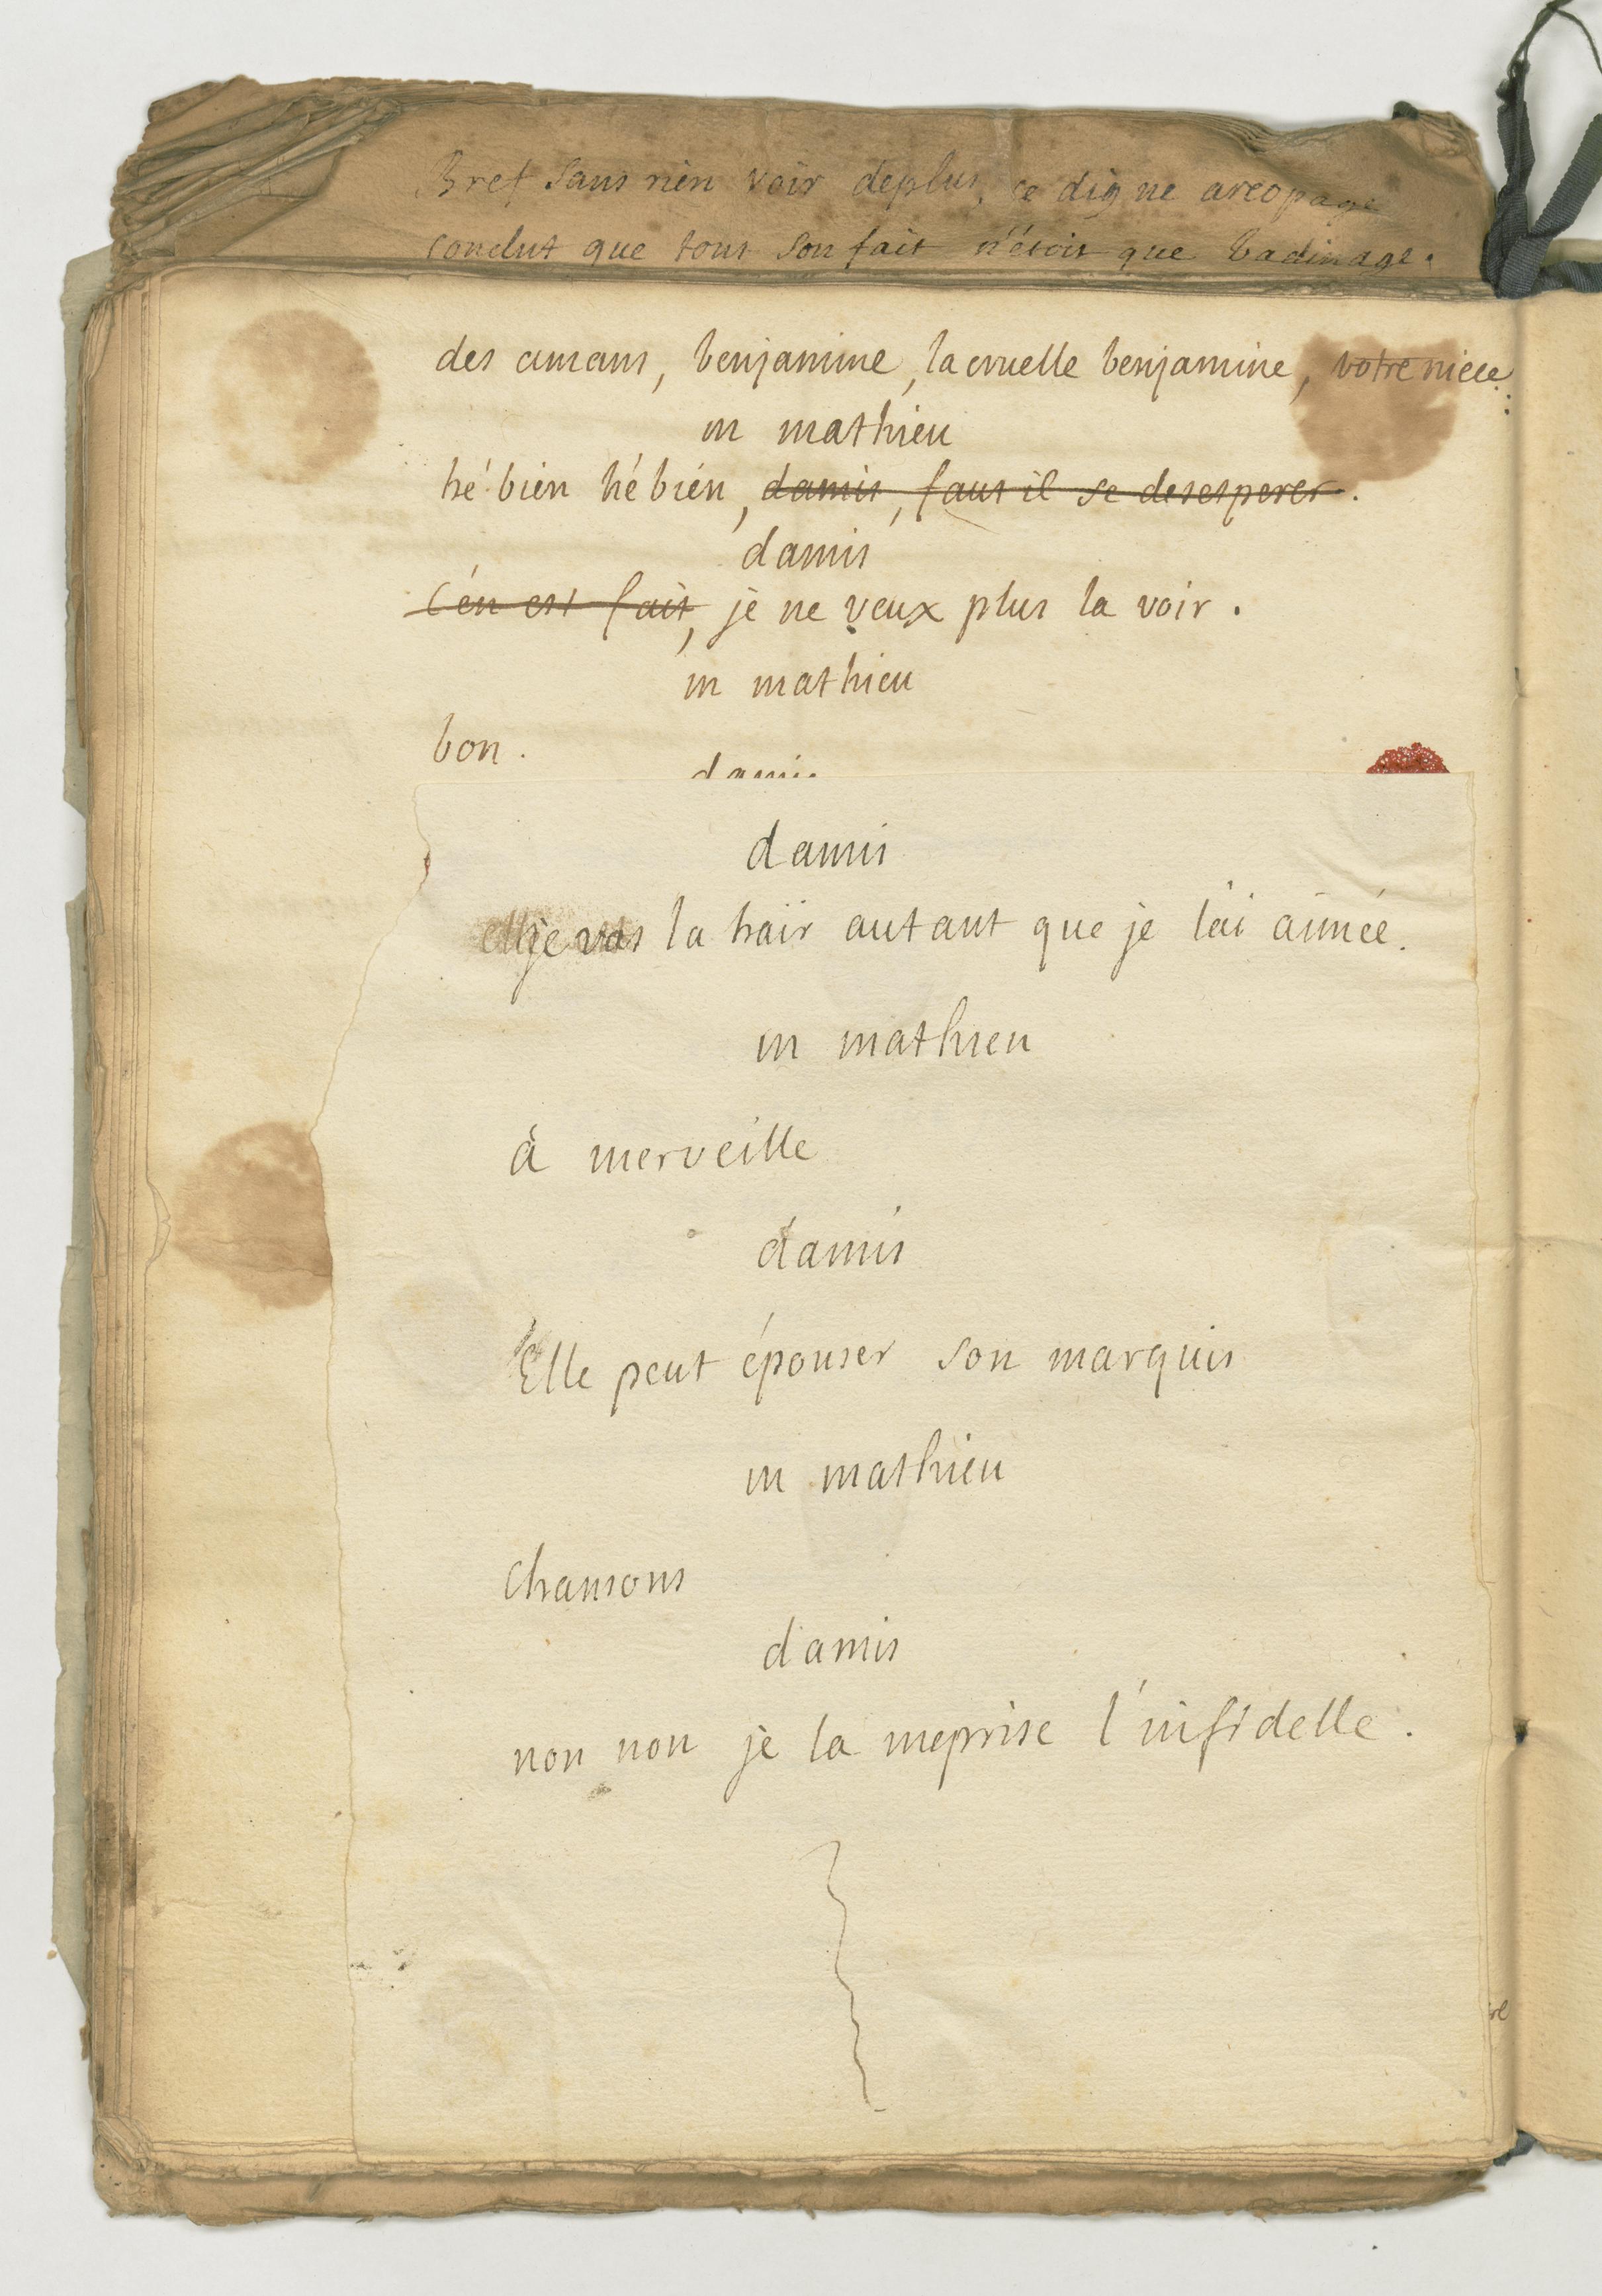 Bref sans rien voir deplus, ce digne areopage
conclut que tout son fait n'étoit que badinage.
des amans, benjamine, la cruelle benjamine, votre niece
m mathieu
hé bien hé bien, damis, faut il se desesperer.
damis
c'en est fait, je ne veux plus la voir.
m mathieu
bon.
damis
damis
je vas la haïr autant que je l'ai aimée.
m mathieu
à merveille
damis
Elle peut épouser son marquis
m mathieu
chansons
damis
non non je la meprise l'infidelle.